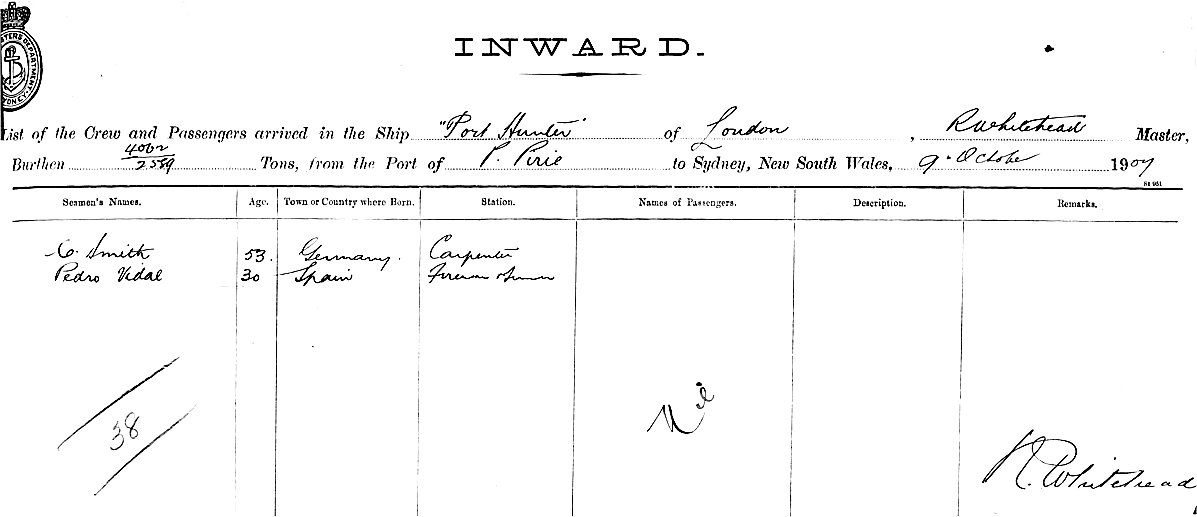 INWARD.
List of the Crew and Passengers arrived in the Ship "Port Hunter" of London, R Whitehead Master,
Burthen 4062/2559 Tons, from the Port of P. Pirie to Sydney, New South Wales, 9 October 1907
Seamen's Names. Age. Town or Country where Born. Station. Names of Passengers. Description. Remarks.
C. Smith 53 Germany. Carpenter
Pedro Vidal 30 Spain Fireman & Trimmer
Nil
38
R. Whitehead